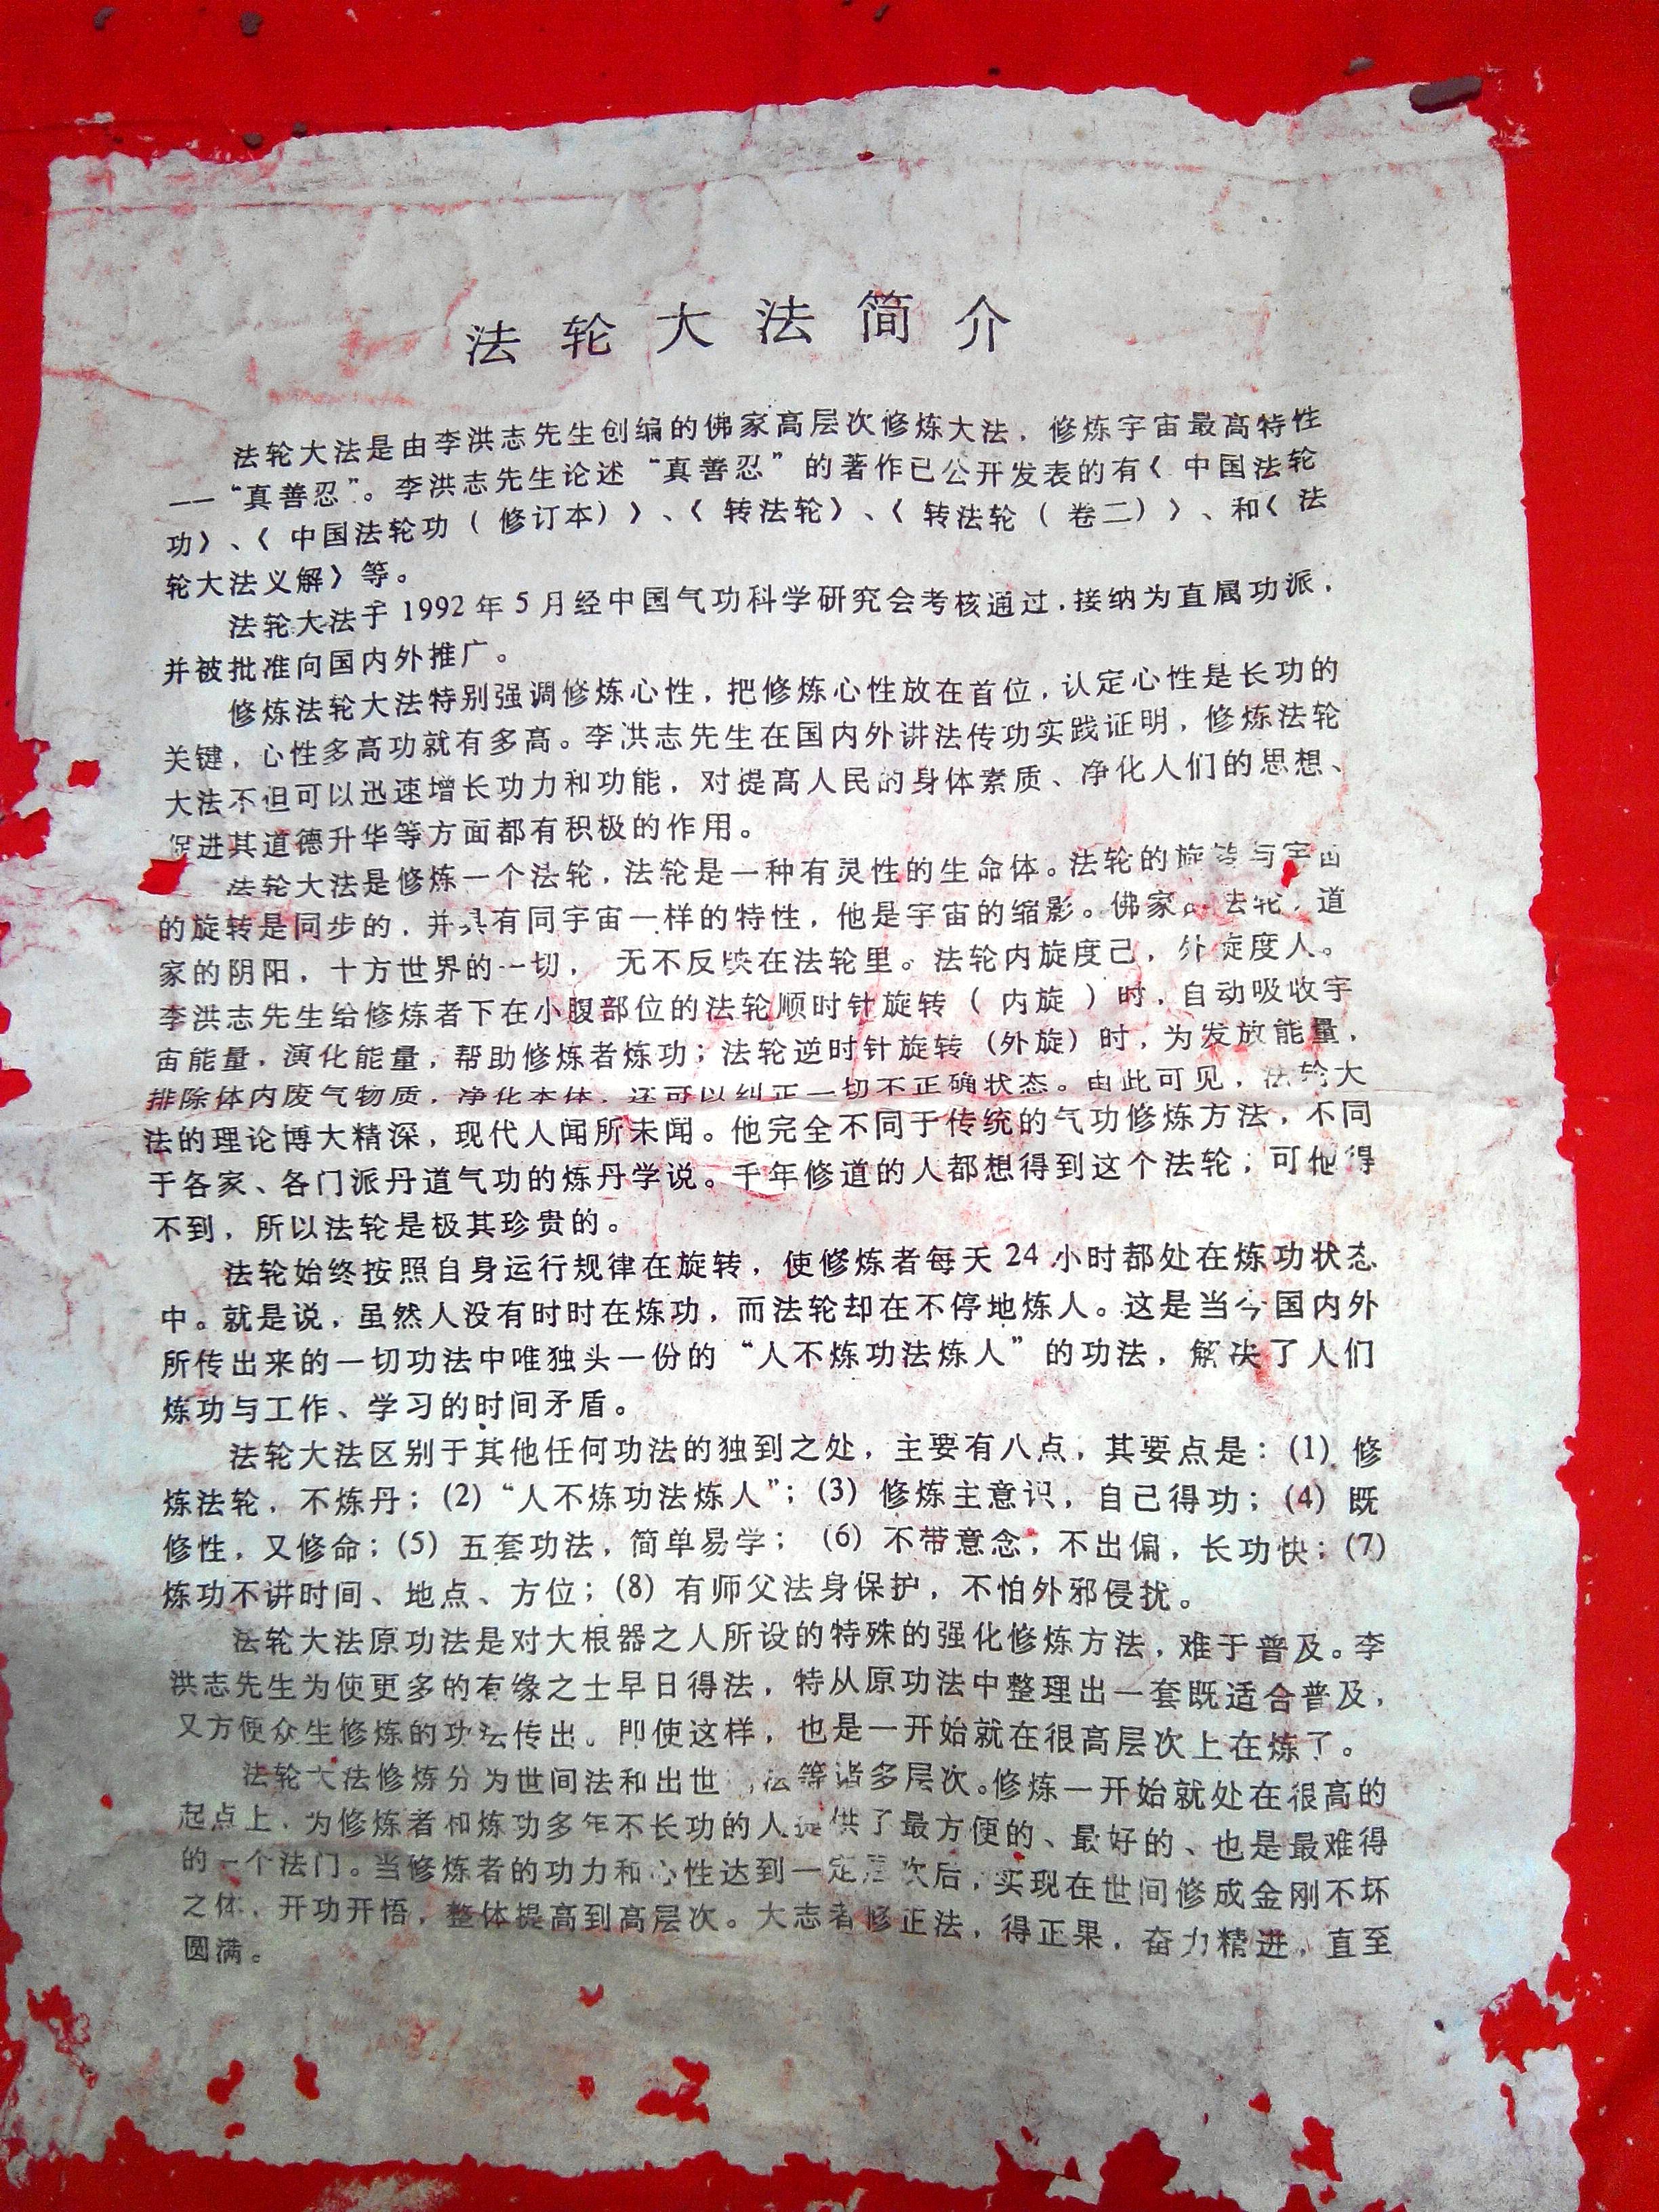 法轮大法简介
法轮大法是由李洪志先生创编的佛家高层次修炼大法，修炼宇宙最高特性
——“真善忍”。李洪志先生论述“真善忍”的著作已公开发表的有《中国法轮
功》、《中国法轮功（修订本）》、《转法轮》、《转法轮（卷二）》、和《法
轮大法义解》等。
法轮大法于1992年5月经中国气功科学研究会考核通过，接纳为直属功派，
并被批准向国内外推广。
修炼法轮大法特别强调修炼心性，把修炼心性放在首位，认定心性是长功的
关键，心性多高功就有多高。李洪志先生在国内外讲法传功实践证明，修炼法轮
大法不但可以迅速增长功力和功能，对提高人民的身体素质、净化人们的思想、
促进其道德升华等方面都有积极的作用。
法轮大法是修炼一个法轮，法轮是一种有灵性的生命体。法轮的旋转与宇宙
的旋转是同步的，并具有同宇宙一样的特性，他是宇宙的缩影。佛家的法轮，道
家的阴阳，十方世界的一切，无不反映在法轮里。法轮内旋度己，外旋度人。
李洪志先生给修炼者下在小腹部位的法轮顺时针旋转（内旋）时，自动吸收宇
宙能量，演化能量，帮助修炼者炼功；法轮逆时针旋转（外旋）时，为发放能量，
排除体内废气物质，净化本体，还可以纠正一切不正确状态。由此可见，法轮大
法的理论博大精深，现代人闻所未闻。他完全不同于传统的气功修炼方法，不同
于各家、各门派丹道气功的炼丹学说。千年修道的人都想得到这个法轮，可他得
不到，所以法轮是极其珍贵的。
法轮始终按照自身运行规律在旋转，使修炼者每天24小时都处在炼功状态
中。就是说，虽然人没有时时在炼功，而法轮却在不停地炼人。这是当今国内外
所传出来的一切功法中唯独头一份的“人不炼功法炼人”的功法，解决了人们
炼功与工作、学习的时间矛盾。
法轮大法区别于其他任何功法的独到之处，主要有八点，其要点是：(1) 修
炼法轮，不炼丹；(2)“人不炼功法炼人”；(3) 修炼主意识，自己得功；(4) 既
修性，又修命；(5) 五套功法，简单易学；(6) 不带意念，不出偏，长功快；(7)
炼功不讲时间、地点、方位；(8) 有师父法身保护，不怕外邪侵扰。
法轮大法原功法是对大根器之人所设的特殊的强化修炼方法，难于普及。李
洪志先生为使更多的有缘之士早日得法，特从原功法中整理出一套既适合普及，
又方便众生修炼的功法传出。即使这样，也是一开始就在很高层次上在炼了。
法轮大法修炼分为世间法和出世 法等诸多层次。修炼一开始就处在很高的
起点上，为修炼者和炼功多年不长功的人提供了最方便的、最好的、也是最难得
的一个法门。当修炼者的功力和心性达到一定层次后，实现在世间修成金刚不坏
之体，开功开悟，整体提高到高层次。大志者修正法，得正果，奋力精进，直至
圆满。